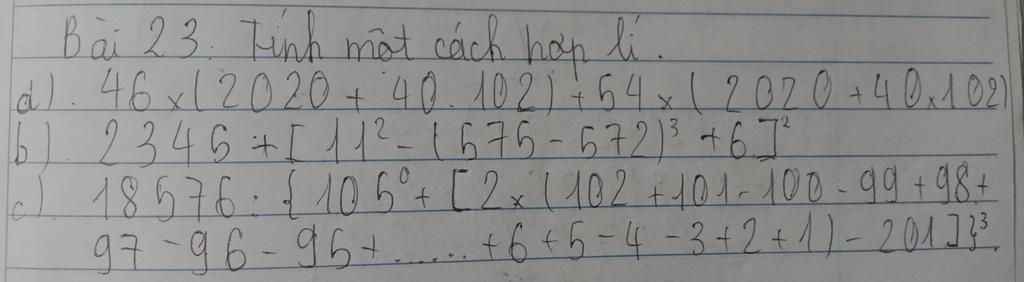 Bài 23. Tính một cách hợp lí.
a). 46 x (2020 + 40.102) + 54 x (2020 + 40x102)
b). 2345 + [11² - (575 - 572)³ + 6]²
c). 18576 : {105⁰ + [2x(102 + 101 - 100 - 99 + 98 +
97 - 96 - 95 + ...... + 6 + 5 - 4 - 3 + 2 + 1) - 201]}³.